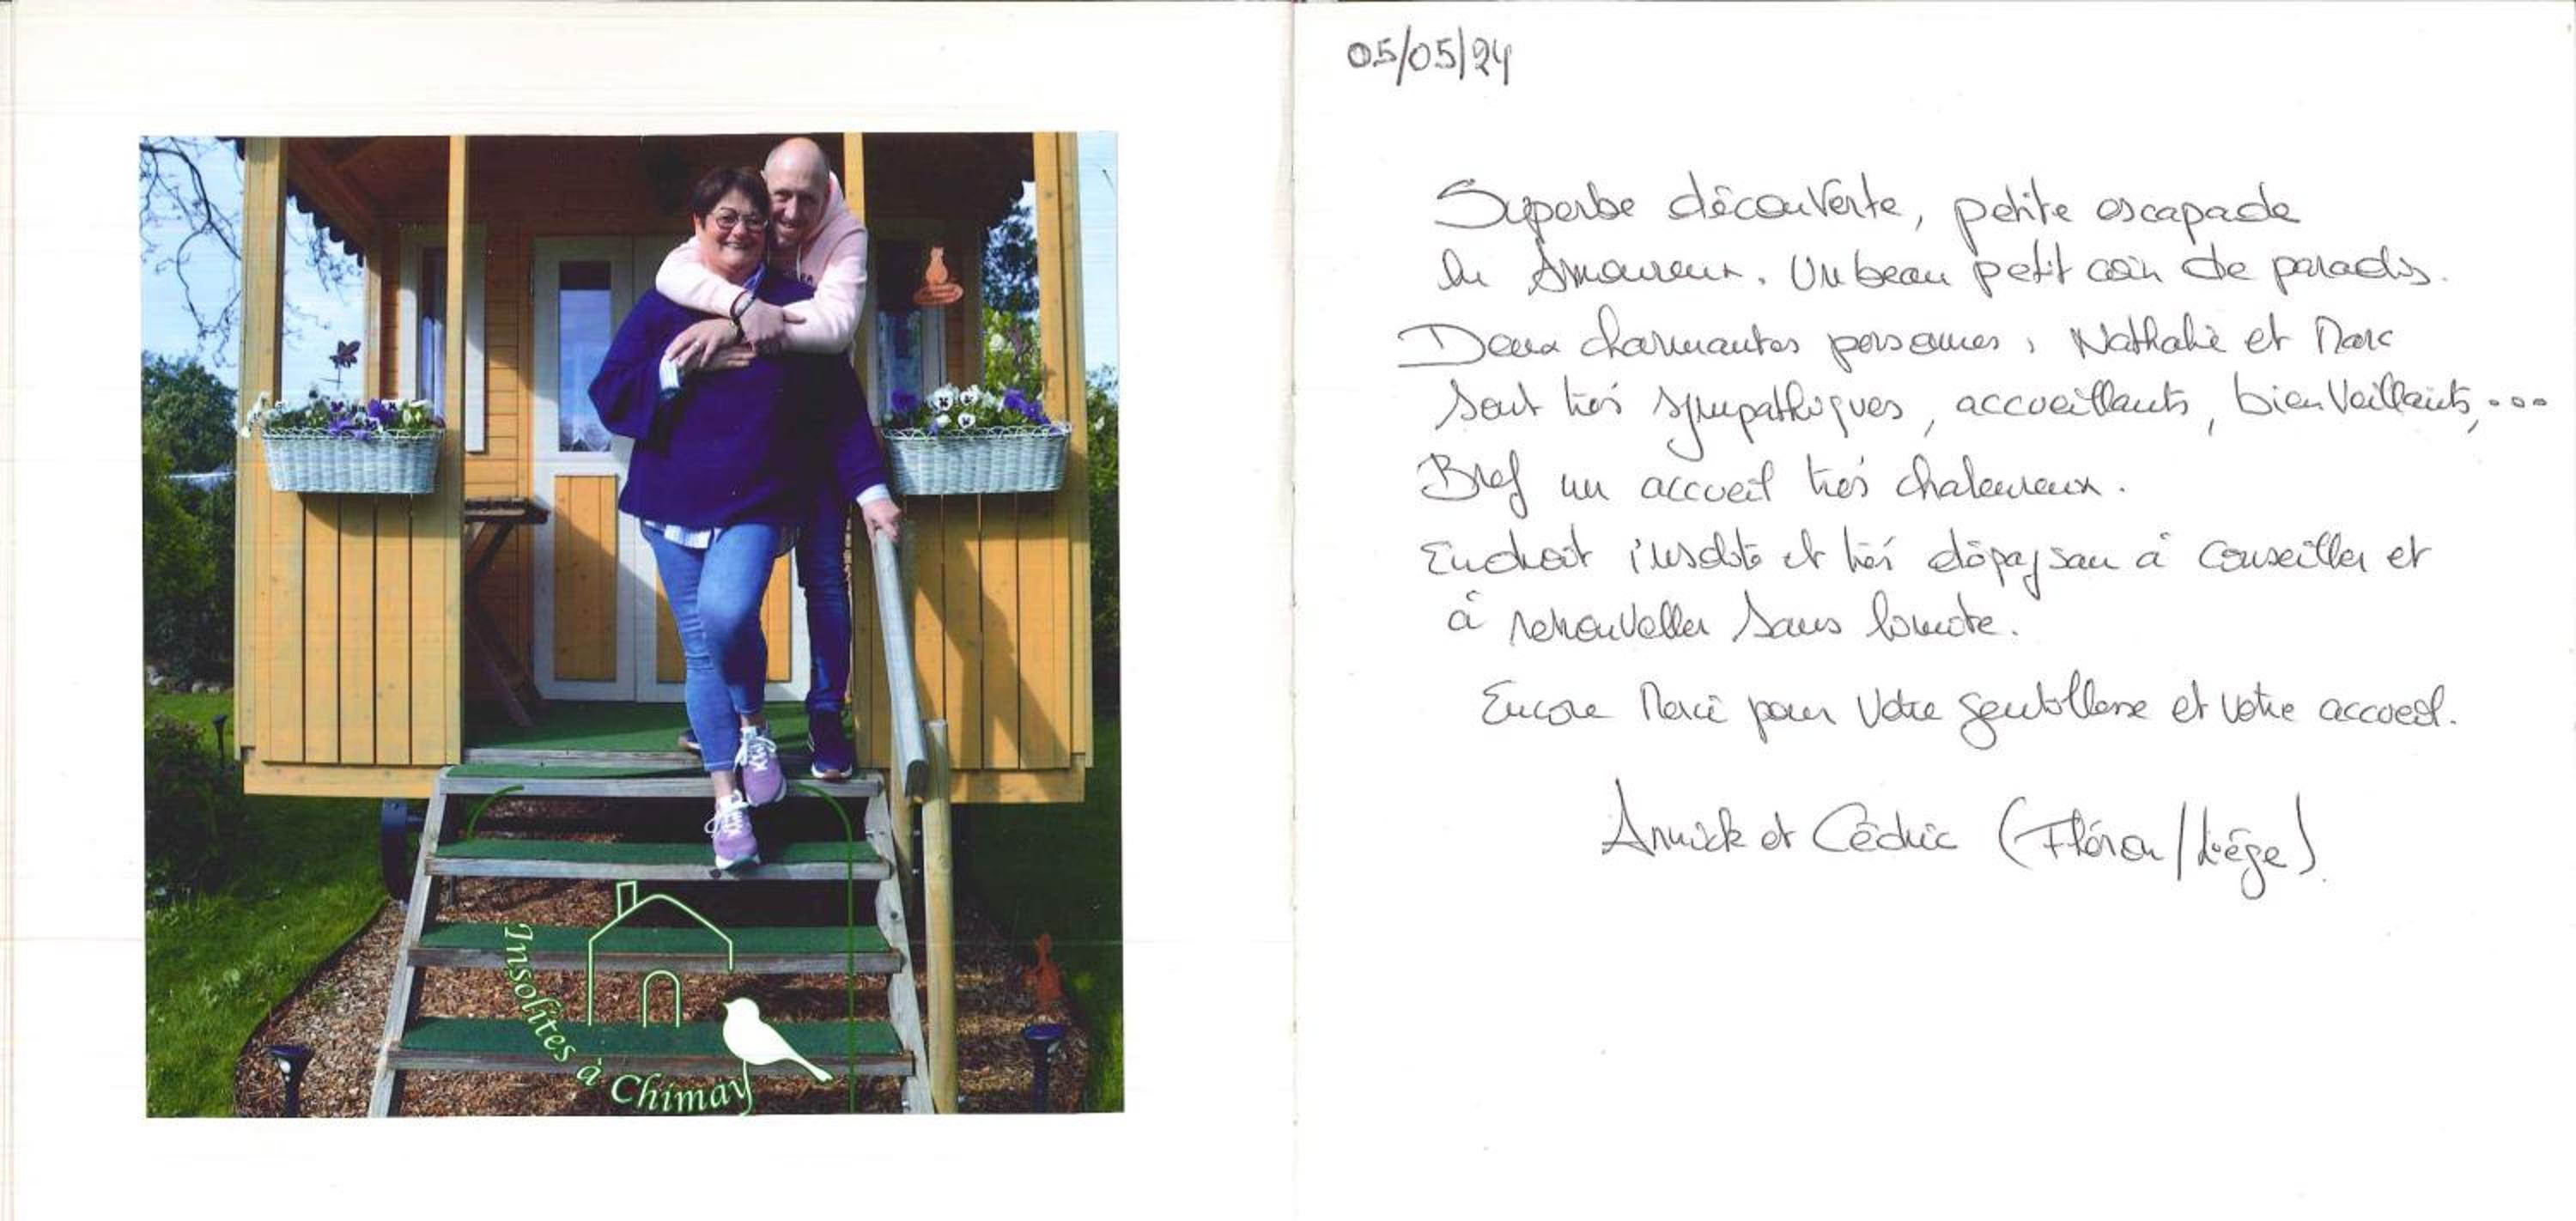 Insolites à Chimay
05/05/24
Superbe découverte, petite escapade
en Amoureux. Un beau petit coin de paradis.
Deux charmantes personnes, Nathalie et Marc
sont très sympathiques, accueillants, bienveillants, ...
Bref un accueil très chaleureux.
Endroit insolite et très dépaysan à conseiller et
à renouveller sans limite.
Encore Merci pour votre gentillesse et votre accueil.
Annick et Cédric (Fléron/Liége).